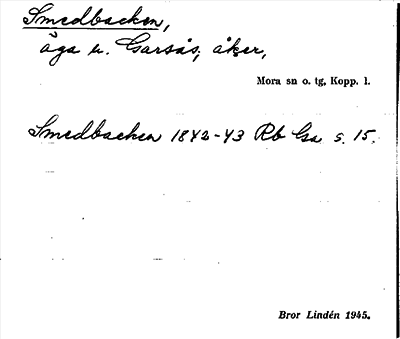 Smedbacken,
äga u. Garsås; åker,
Mora sn o. tg, Kopp. l.
Smedbacken 1842-43 Rb Ga s. 15.
Bror Lindén 1945.